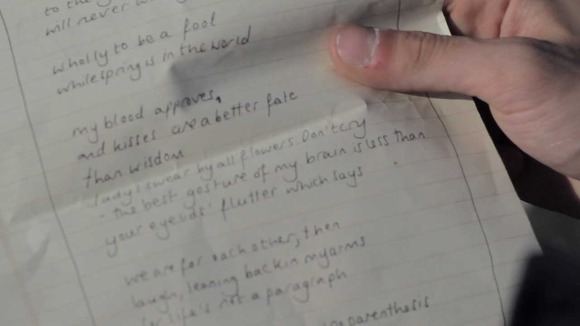 to the
will never
wholly to be a fool
while spring is in the world
my blood approves,
and kisses are a better fate
than wisdom
lady i swear by all flowers. Don't cry
- the best gesture of my brain is less than
your eyelids' flutter which says
we are for each other; then
laugh, leaning back in my arms
for life's not a paragraph
parenthesis